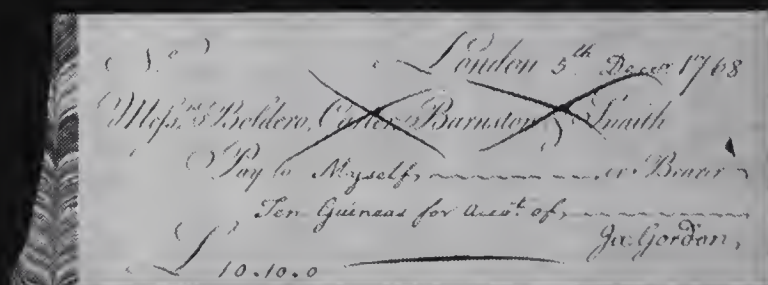 No. London 5th Decemr 1768
Messrs. Boldero, Carter, Barnston & Snaith
Pay to Myself, or Bearer
Ten Guineas for Accot. of,
Ja: Gordon,
£ 10.10.0